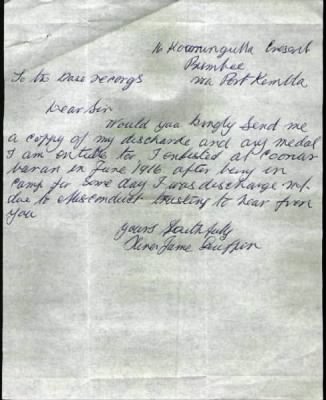 Cresent
Primbee
To the Base records via Port Kembla
Dear Sir
Would you kingly send me
a coppy of my discharge and any medal
I am entitle to, I enlisted at Coonar
baran in June 1916 after being in
camp for some day I was discharge not
due to misconduct trusting to hear from
you
yours faithfully
Oliver Jame